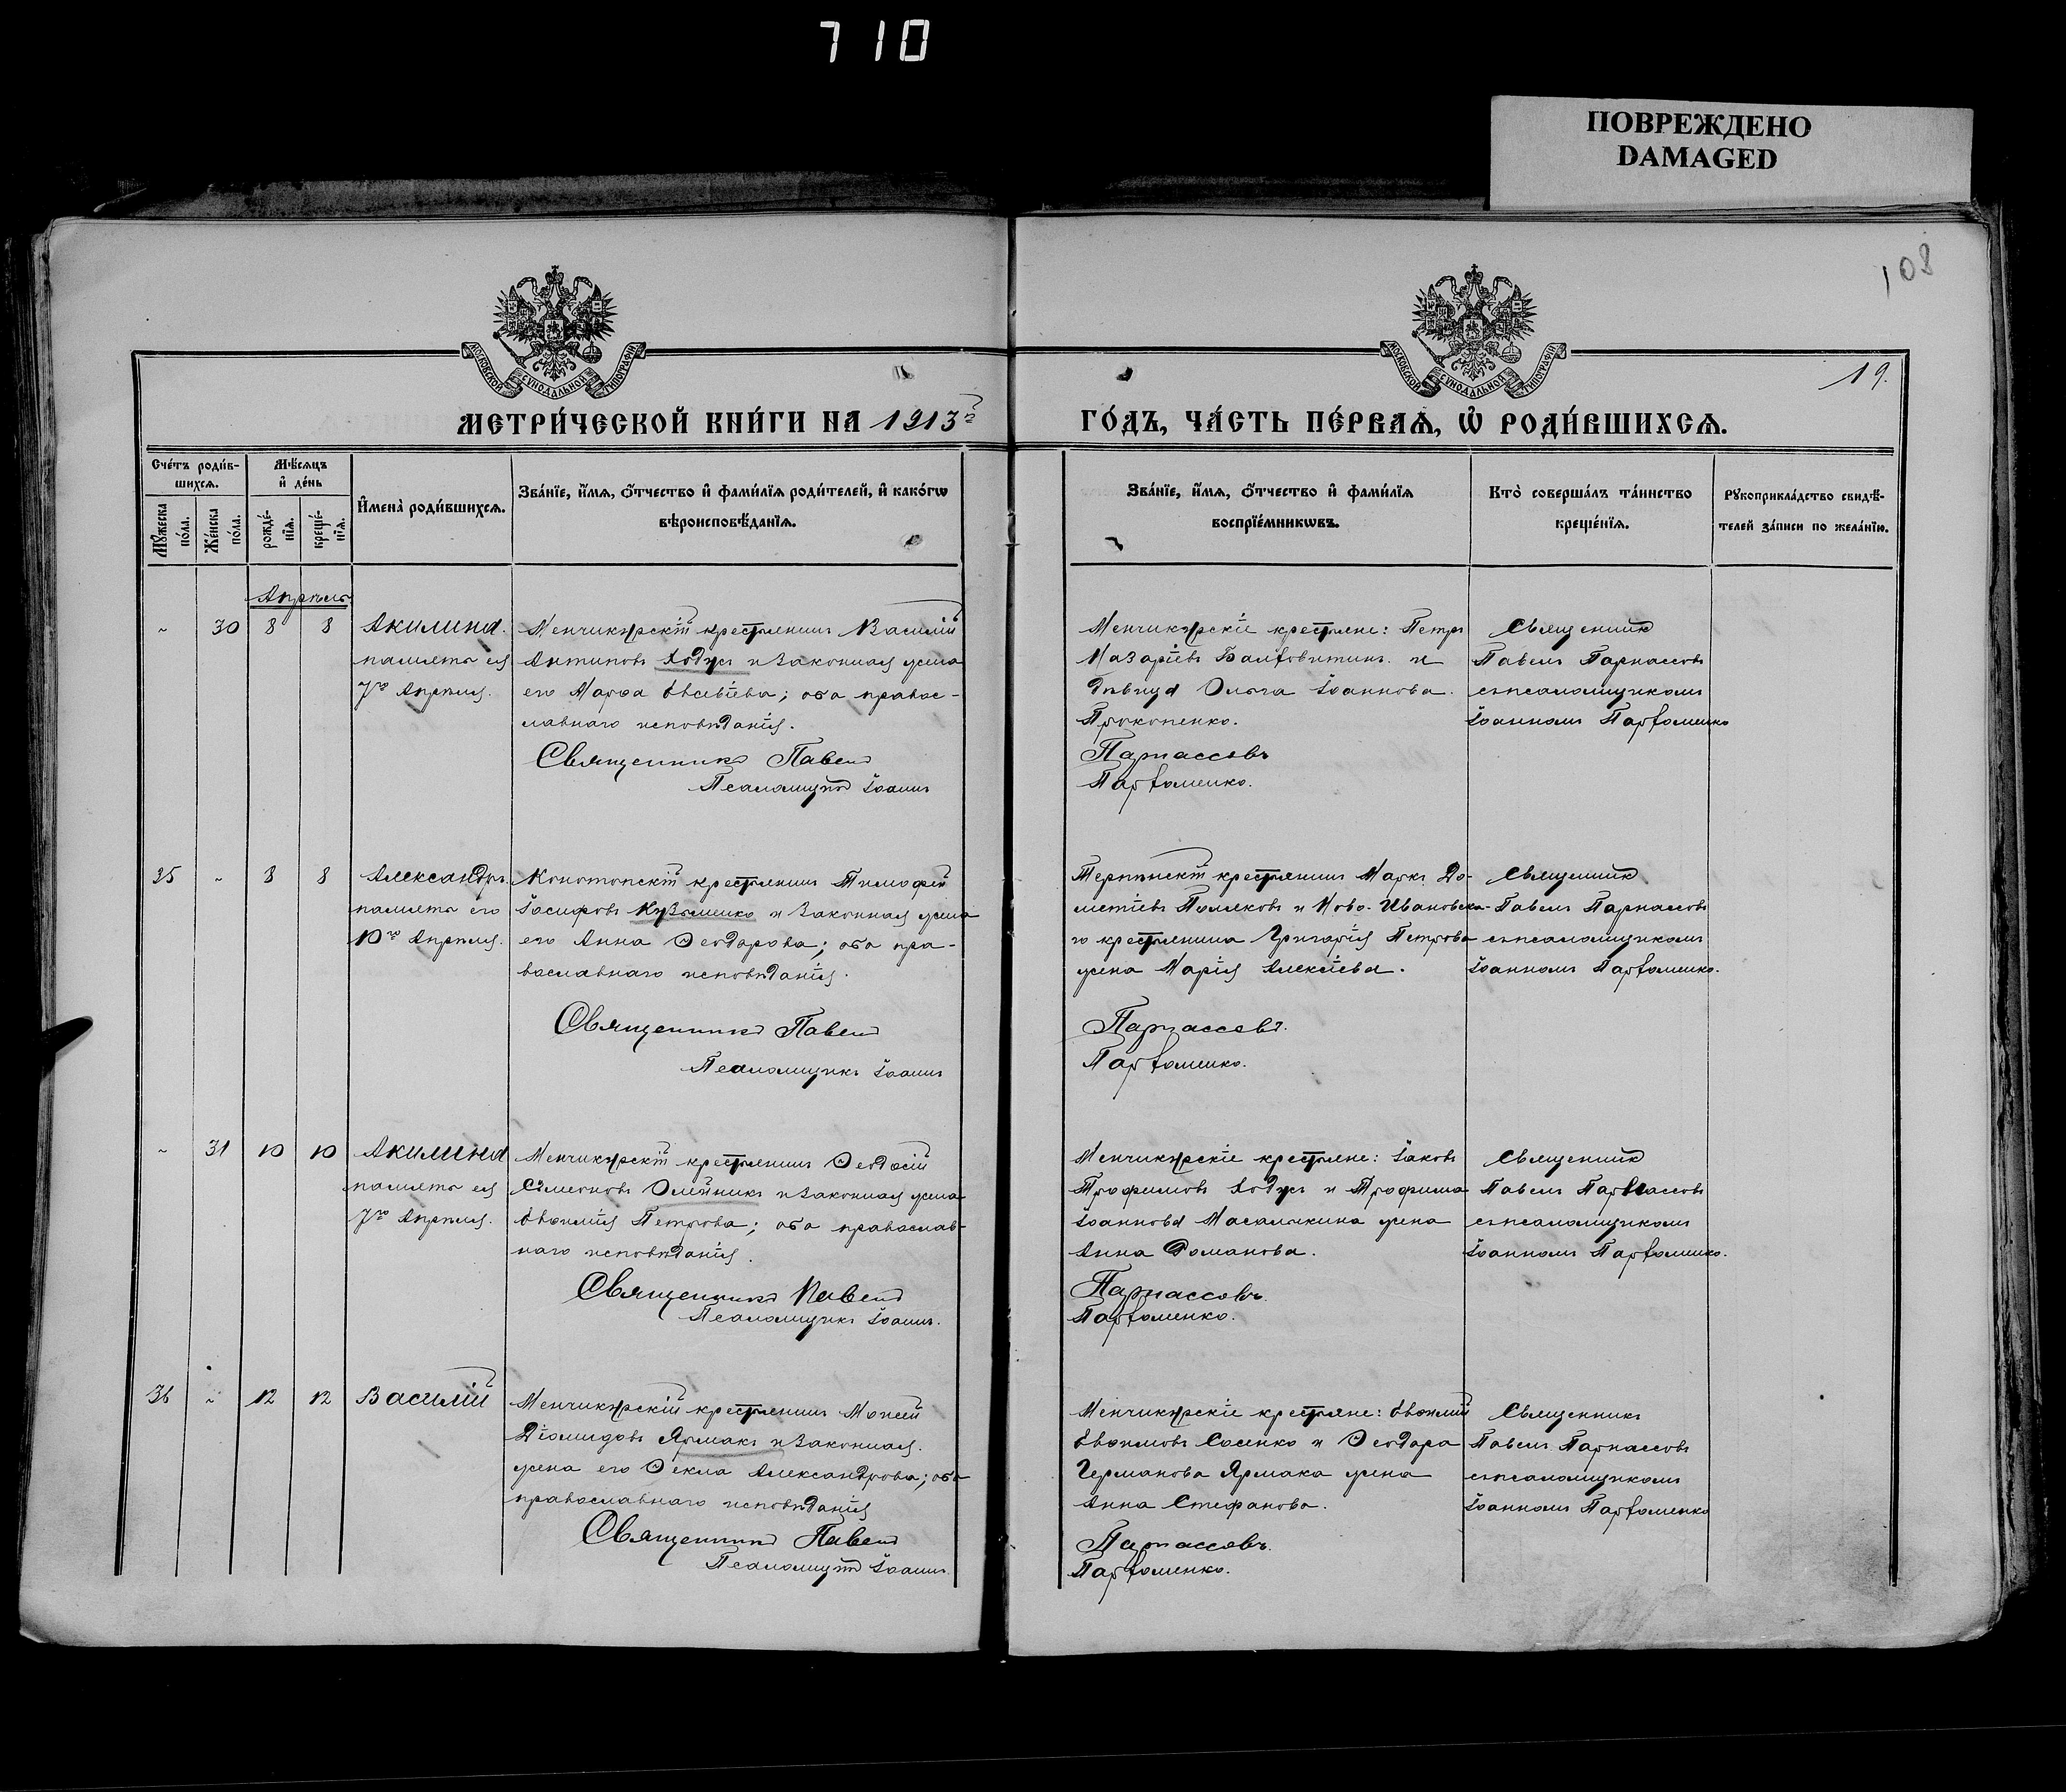 710
ПОВРЕЖДЕНО
DAMAGED
108
МОСКОВСКОЙ СѴНОДАЛЬНОЙ ТИПОГРАФІИ
МОСКОВСКОЙ СѴНОДАЛЬНОЙ ТИПОГРАФІИ
19.
МЕТРИ́ЧЕСКОЙ КНИ́ГИ НА 1913
ГО́ДЪ, ЧА́СТЬ ПЕ́РВАѦ, Ѡ РОДИ́ВШИХСѦ.
Сче́тъ роди́в-
шихсѧ.
Мꙋ́жеска
по́ла.
Же́нска
по́ла.
Мѣ́сѧцъ
и҆ де́нь
рожде́-
нїѧ.
креще́-
нїѧ.
И҆мена̀ роди́вшихсѧ.
Зва́нїе, и҆́мѧ, ѻ҆́тчество и҆ фами́лїѧ роди́телей, и҆ како́гѡ
вѣроисповѣ́данїѧ.
Зва́нїе, и҆́мѧ, ѻ҆́тчество и҆ фами́лїѧ
воспрїе́мникѡвъ.
Кто̀ соверша́лъ та́инство
креще́нїѧ.
Рꙋкоприкла́дство свидѣ́-
телей за́писи по жела́нїю.
Апрѣль
30 8 8 Акилина.
память ея
7го Апрѣля.
Менчикурскій крестьянинъ Василій
Антиповъ Ходусъ и законная жена
его Марѳа Евсевіева; оба правос-
лавнаго исповѣданія.
Священникъ Павелъ
Псаломщикъ Іоаннъ
Менчикурскіе крестьяне: Петръ
Назаріевъ и
дѣвица Ольга Іоаннова
Прокопенко.
Парнассовъ
Парфоменко.
Священникъ
Павелъ Парнассовъ
съ псаломщикомъ
Іоанномъ Парфоменко
35 8 8 Александръ.
память его
10го Апрѣля.
Конотопскій крестьянинъ Тимофей
Іосифовъ Кузьменко и законная жена
его Анна Ѳеодорова; оба пра-
вославнаго исповѣданія.
Священникъ Павелъ
Псаломщикъ Іоаннъ
Терпѣнскій крестьянинъ Маркъ До-
метіевъ Поляковъ и Ново-Ивановска-
го крестьянина Григорія Петрова
жена Марія Алексіева.
Парнассовъ.
Парфоменко.
Священникъ
Павелъ Парнассовъ
съ псаломщикомъ
Іоанномъ Парфоменко.
31 10 10 Акилина
память ея
7го Апрѣля.
Менчикурскій крестьянинъ Ѳеодосій
Сѵмеоновъ Олейникъ и законная жена
Евѳимія Петрова; оба православ-
наго исповѣданія.
Священникъ Павелъ
Псаломщикъ Іоаннъ.
Менчикурскіе крестьяне: Іаковъ
Трофимовъ Ходусъ и Трофима
Іоаннова Масалыкина жена
Анна Романова.
Парнассовъ.
Парфоменко.
Священникъ
Павелъ Парнассовъ
съ псаломщикомъ
Іоанномъ Парфоменко.
36 12 12 Василій
Менчикурскій крестьянинъ Моисей
Діомидовъ Ярмакъ и законная
жена его Ѳекла Александрова; оба
православнаго исповѣданія
Священникъ Павелъ
Псаломщикъ Іоаннъ
Менчикурскіе крестьяне: Евѳимій
Евѳимовъ Сосенко и Ѳеодора
Германова Ярмака жена
Анна Стефанова.
Парнассовъ.
Парфоменко.
Священникъ
Павелъ Парнассовъ
съ псаломщикомъ
Іоанномъ Парфоменко